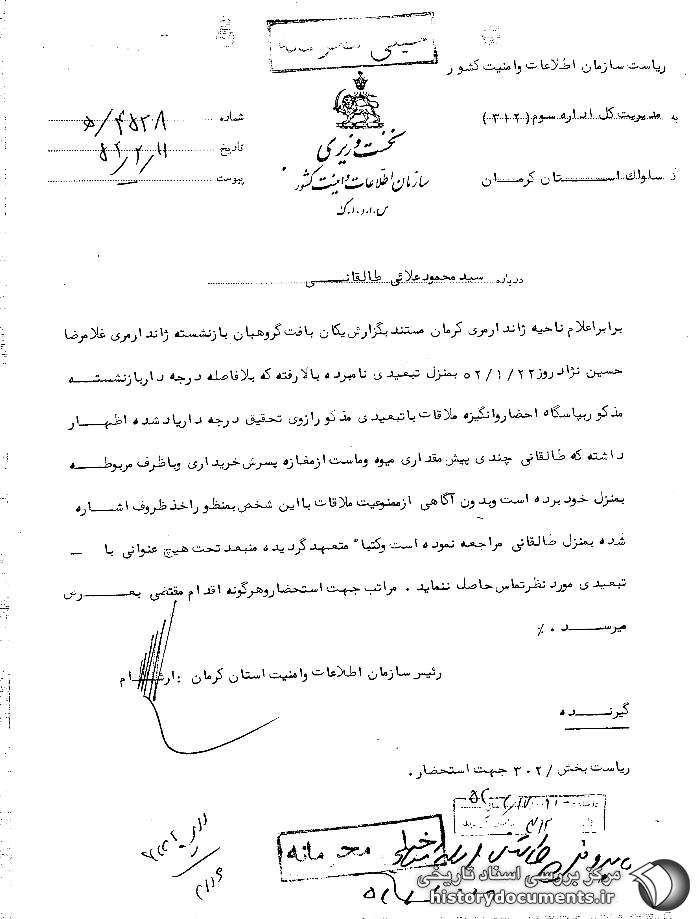 ریاست سازمان اطلاعات وامنیت کشور
به مدیریت کل اداره سوم (۳۱۲)
از ساواک استان کرمان
نخست وزیری
سازمان اطلاعات و امنیت کشور
س.ا.و.ا.ک
شماره
تاریخ ۵۲/۲/۱۱
پیوست
درباره سید محمود علائی طالقانی
برابراعلام ناحیه ژاندارمری کرمان مستند بگزارش یکان بافت گروهبان بازنشسته ژاندارمری غلامرضا
حسین نژاد روز ۵۲/۱/۲۲ بمنزل تبعیدی نامبرده بالا رفته که بلافاصله درجه دار بازنشسته
مذکور بپاسگاه احضار وانگیزه ملاقات با تبعیدی مذکور ازوی تحقیق درجه دار یاد شده اظهار
داشته که طالقانی چندی پیش مقداری میوه وماست از مغازه پسرش خریداری وبا ظرف مربوطه
بمنزل خود برده است وبدون آگاهی از ممنوعیت ملاقات با این شخص بمنظور اخذ ظروف اشاره
شده بمنزل طالقانی مراجعه نموده است وکتبا" متعهد گردیده منبعد تحت هیچ عنوانی با
تبعیدی مورد نظر تماس حاصل ننماید . مراتب جهت استحضار وهرگونه اقدام مقتضی بعرض
میرسد ./
رئیس سازمان اطلاعات وامنیت استان کرمان : ارشام
گیرنده
ریاست بخش /۳۰۲ جهت استحضار .
خیلی محرمانه
مرکز بررسی اسناد تاریخی
historydocuments.ir